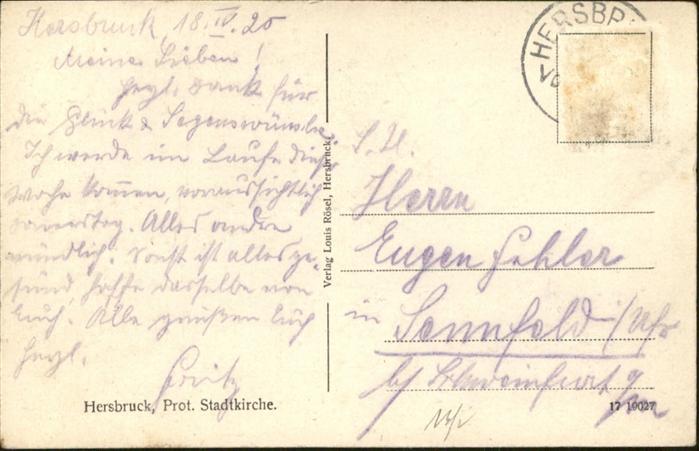 Hersbruck, 18.IV.20
Meine Lieben!
Herzl. Dank für
die Glück & Segenswünsche.
Ich werde im Laufe dieser
Woche kommen, voraussichtlich
Donnerstag. Alles andre
mündlich. Sonst ist alles ge-
sund, hoffe dasselbe von
Euch. Alle grüßen Euch
herzl.
Fritz
Hersbruck, Prot. Stadtkirche.
Verlag Louis Rösel, Hersbruck.
HERSBR
S. H.
Herrn
Eugen
in Sennfeld
b/ Schweinfurt a/m
17 19027